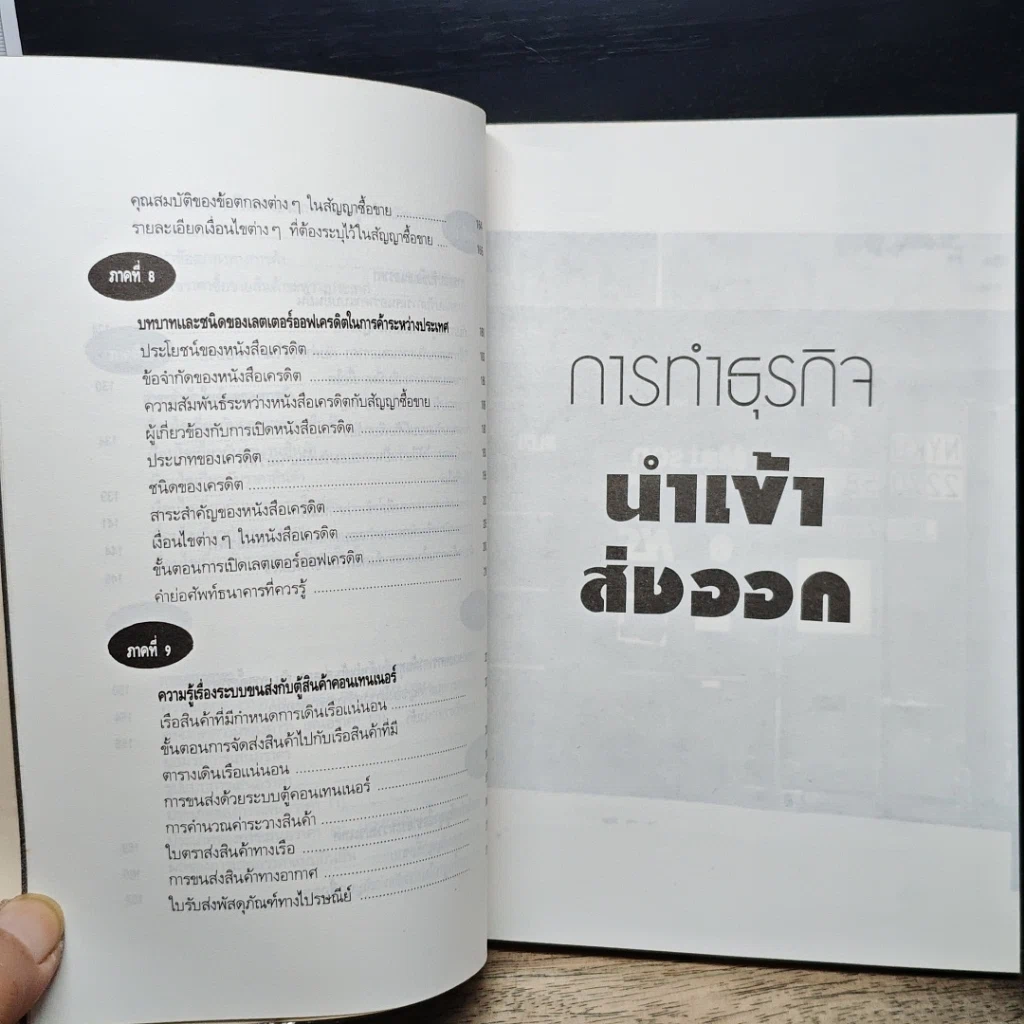 คุณสมบัติของข้อตกลงต่างๆ ในสัญญาซื้อขาย
รายละเอียดเงื่อนไขต่างๆ ที่ต้องระบุไว้ในสัญญาซื้อขาย
ภาคที่ 8
บทบาทและชนิดของเลตเตอร์ออฟเครดิตในการค้าระหว่างประเทศ
ประโยชน์ของหนังสือเครดิต
ข้อจำกัดของหนังสือเครดิต
ความสัมพันธ์ระหว่างหนังสือเครดิตกับสัญญาซื้อขาย
ผู้เกี่ยวข้องกับการเปิดหนังสือเครดิต
ประเภทของเครดิต
ชนิดของเครดิต
สาระสำคัญของหนังสือเครดิต
เงื่อนไขต่างๆ ในหนังสือเครดิต
ขั้นตอนการเปิดเลตเตอร์ออฟเครดิต
คำย่อศัพท์ธนาคารที่ควรรู้
ภาคที่ 9
ความรู้เรื่องระบบขนส่งกับตู้สินค้าคอนเทนเนอร์
เรือสินค้าที่มีกำหนดการเดินเรือแน่นอน
ขั้นตอนการจัดส่งสินค้าไปกับเรือสินค้าที่มี
ตารางเดินเรือแน่นอน
การขนส่งด้วยระบบตู้คอนเทนเนอร์
การคำนวณค่าระวางสินค้า
ใบตราส่งสินค้าทางเรือ
การขนส่งสินค้าทางอากาศ
ใบรับส่งพัสดุภัณฑ์ทางไปรษณีย์
การทำธุรกิจ
นำเข้า
ส่งออก